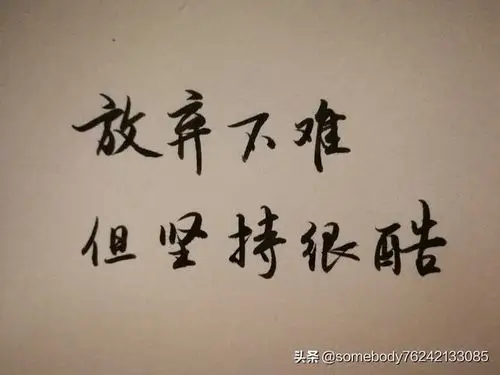 放弃不难
但坚持很酷
头条 @somebody76242133085